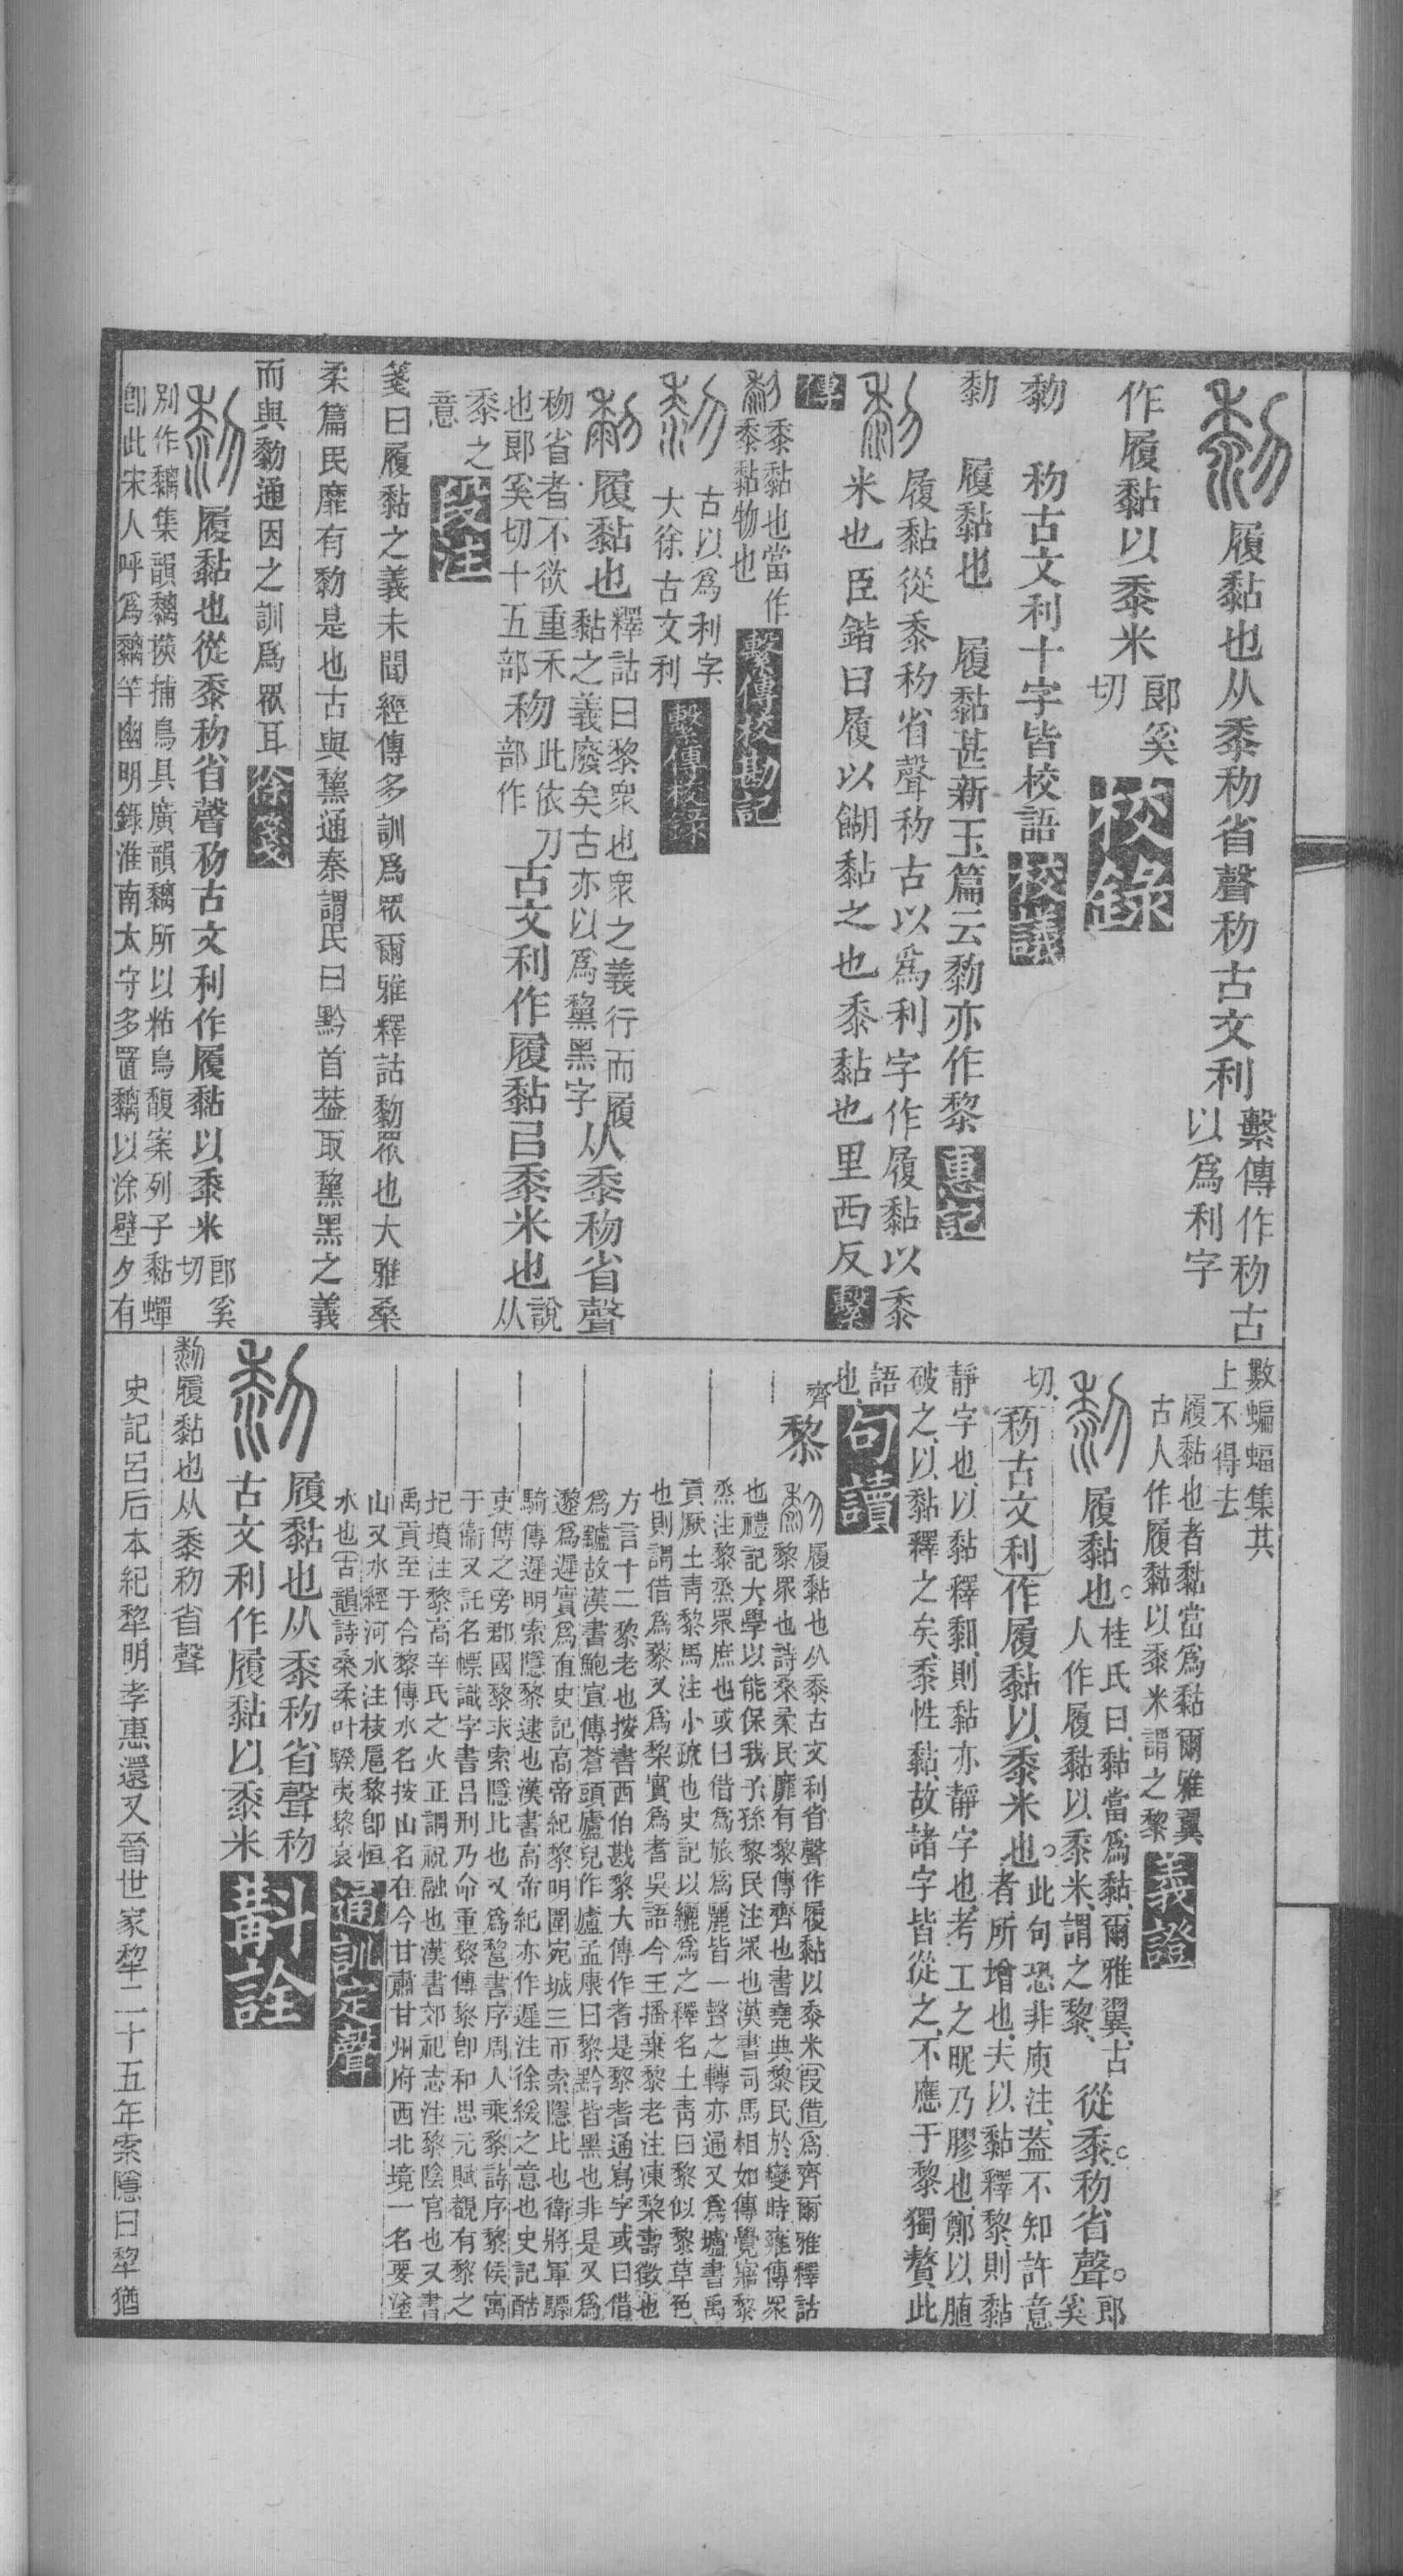 履黏也从黍𥝢省聲𥝢古文利
繫傳作𥝢古
以爲利字
作履黏以黍米
郎奚
切
校錄
𥝢古文利十字皆校語
校議
履黏也 履黏甚新玉篇云䵩亦作黎
惠記
履黏從黍𥝢省聲𥝢古以爲利字作履黏以黍
米也臣鍇曰履以餬黏之也黍黏也里西反
繫
傳
黍黏也當作
黍黏物也
繫傳校勘記
古以爲利字
大徐古文利
繫傳校錄
履黏也
釋詁曰黎衆也衆之義行而履
黏之義廢矣古亦以爲黧黑字
从黍𥝢省聲
𥝢省者不欲重禾
也郎奚切十五部
𥝢
此依刀
部作
古文利作履黏㠯黍米也
說
从
黍之
意
段注
箋曰履黏之義未聞經傳多訓爲眾爾雅釋詁䵩眾也大雅桑
柔篇民靡有䵩是也古與黧通秦謂民曰黔首葢取黧黑之義
而與䵩通因之訓爲眾耳
徐箋
履黏也從黍𥝢省聲𥝢古文利作履黏以黍米
郎奚
切
別作䵓集韻䵓𪐀捕鳥具廣韻䵓所以粘鳥馥案列子黏蟬
卽此宋人呼爲䵓竿幽明錄淮南太守多置䵓以涂壁夕有
數蝙蝠集其
上不得去
履黏也者黏當爲黏爾雅翼
古人作履黏以黍米謂之黎
義證
履黏也
桂氏曰黏當爲黏爾雅翼古
人作履黏以黍米謂之黎
從黍𥝢省聲
郎
奚
切
𥝢古文利作履黏以黍米也
此句恐非庾注葢不知許意
者所增也夫以黏釋黎則黏
靜字也以黏釋䵒則黏亦靜字也考工之昵乃膠也鄭以脂
破之以黏釋之矣黍性黏故諸字皆從之不應于黎獨贅此
語
也
句讀
齊
黎
履黏也从黍古文利省聲作履黏以黍米叚借爲齊爾雅釋詁
黎眾也詩桑柔民靡有黎傳齊也書堯典黎民於變時雍傳眾
也禮記大學以能保我子孫黎民注眾也漢書司馬相如傳覺寤黎
烝注黎烝眾庶也或曰借爲旅爲麗皆一聲之轉亦通又爲壚書禹
貢厥土青黎馬注小疏也史記以纚爲之釋名土青曰黎似黎草色
也則謂借爲藜又爲棃實爲耆吳語今王播棄黎老注凍棃壽徵也
方言十二黎老也按書西伯戡黎大傳作者是黎耆通寫字或曰借
爲驢故漢書鮑宣傳蒼頭廬兒作廬孟康曰黎黔皆黑也非是又爲
邌爲遲實爲值史記高帝紀黎明圍宛城三帀索隱比也衛將軍驃
騎傳遲明索隱黎逮也漢書高帝紀亦作遲注徐緩之意也史記酷
吏傳之旁郡國黎來索隱比也又爲𨛫書序周人乘黎詩序黎侯寓
于衞又託名幖識字書呂刑乃命重黎傳黎卽和思元賦覩有黎之
圮墳注黎高辛氏之火正謂祝融也漢書郊祀志注黎陰官也又書
禹貢至于合黎傳水名按山名在今甘肅甘州府西北境一名要塗
山又水經河水注枝扈黎卽恒
水也古韻詩桑柔叶騤夷黎哀
通訓定聲
履黏也从黍𥝢省聲𥝢
古文利作履黏以黍米
斠詮
履黏也从黍𥝢省聲
史記呂后本紀犂明孝惠還又晉世家犂二十五年索隱曰犂猶